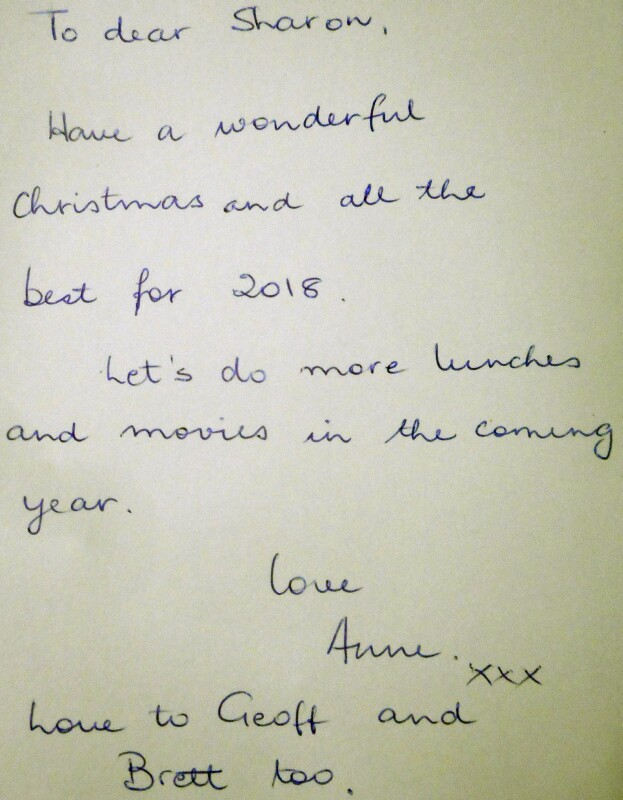 To dear Sharon,
Have a wonderful
Christmas and all the
best for 2018.
Let's do more lunches
and movies in the coming
year.
Love
Anne.
xxx
Love to Geoff and
Brett too.